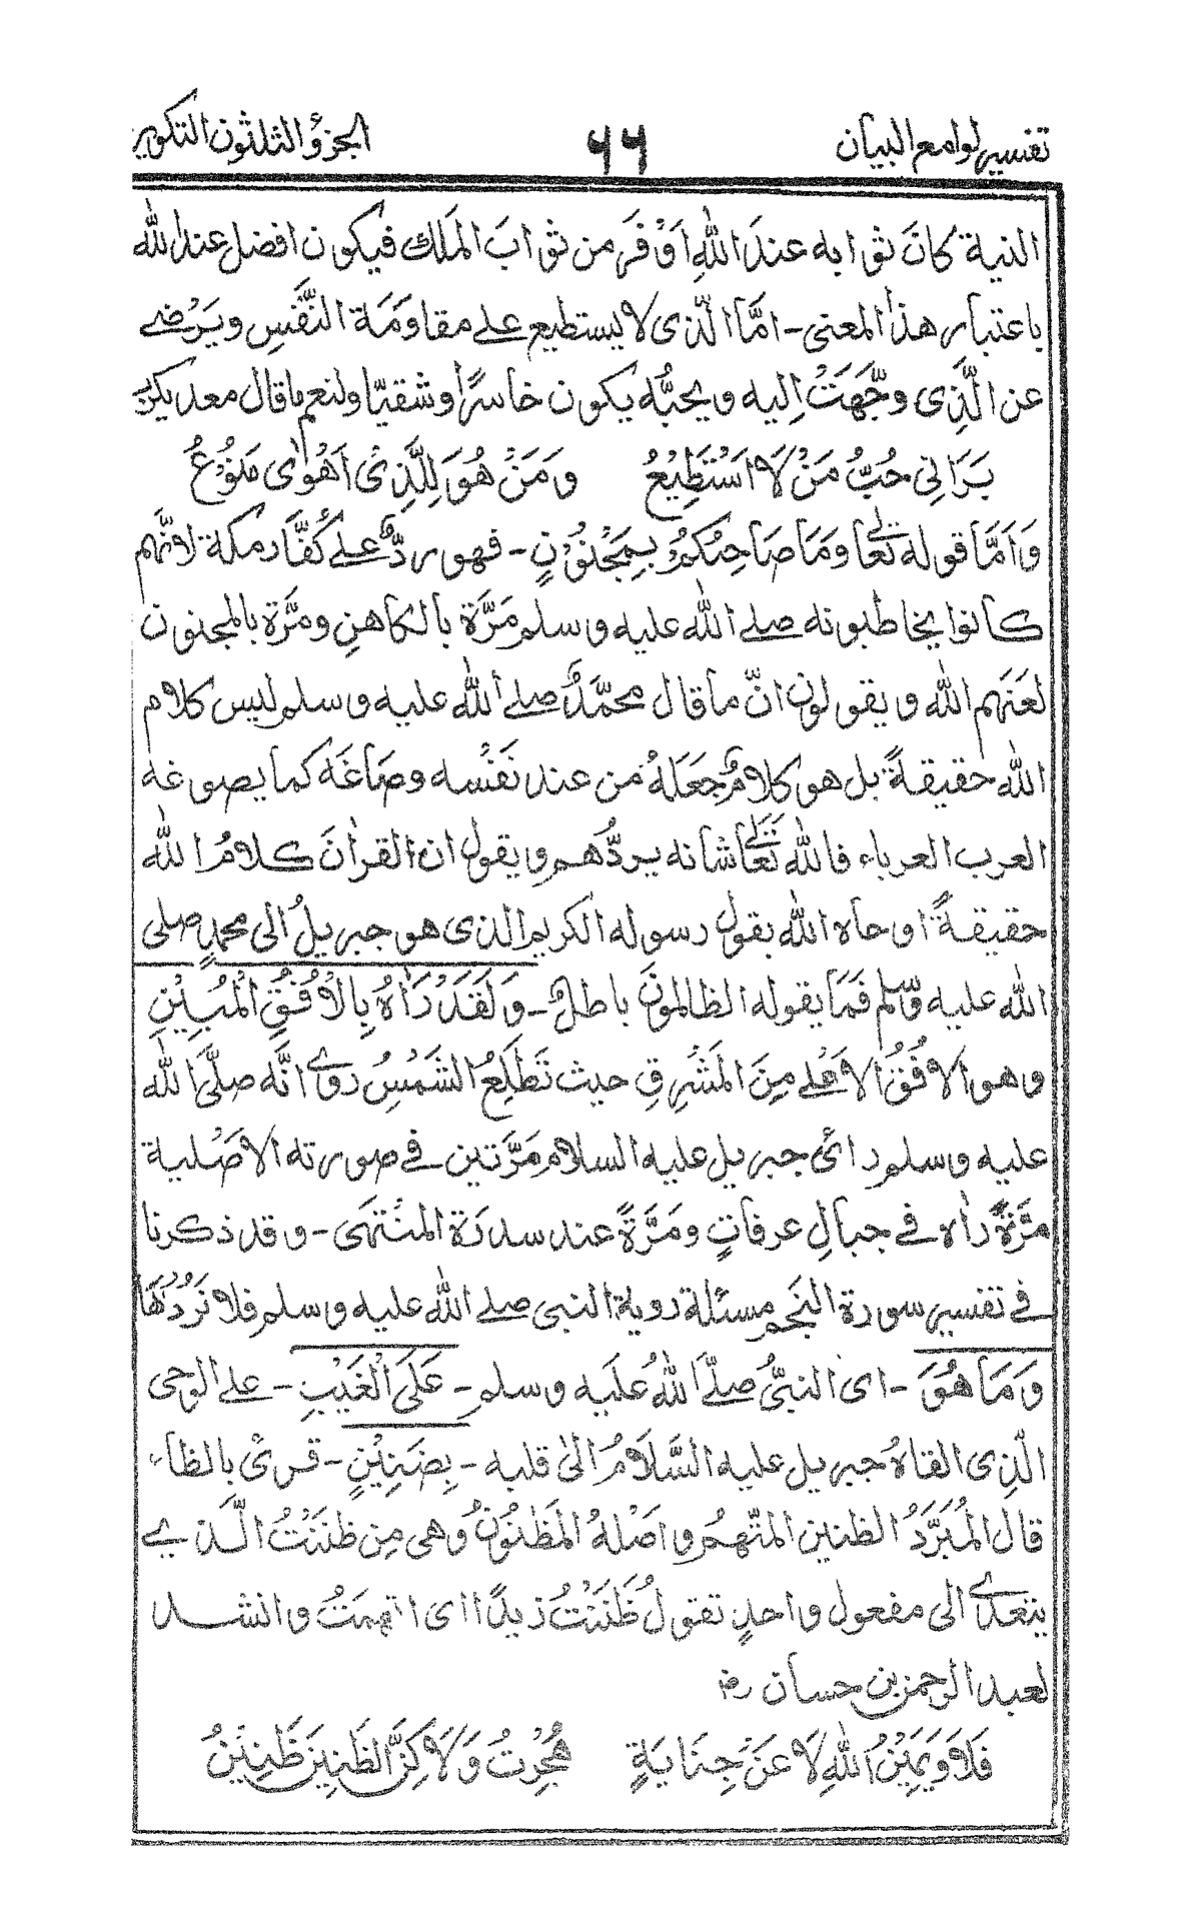 تفسير لوامع البيان ٦٦ الجزؤ الثلثون التكوير
النية كانَ ثوابه عندَ اللهِ اَوْفَر من ثوابَ المَلك فيكون افضل عند الله
باعتبار هذا المعنى - امَّا الّذى لا يستطيع على مقاوَمَة النَّفْسِ ويَرْضى
عن الَّذِى وجَّهَتْ اِليه ويحبُّه يكون خاسرًا وشقيّا ولنعم ما قال معديكرب
يَرَانِى حُبُّ مَنْ لَا اَسْتَطِيْعُ وَمَنْ هُوَ لِلَّذِىْ اَهْوٰى مَنُوْعُ
وَاَمَّا قوله تعالٰى وَمَا صَاحِبُكُمْ بِمَجْنُوْنٍ - فهو ردٌّ على كُفَّار مكة لانَّهم
كانوا يخاطبونه صلى الله عليه وسلم مَرَّة بالكاهنِ ومَرَّة بالمجنون
لعَنَهم الله ويقولون انّ ما قال محمَّدٌ صلى الله عليه وسلم ليس كلام
الله حقيقةً بل هو كلامٌ جعَلهُ من عند نَفْسه وصَاغَه كما يصوغه
العرب العرباء فالله تعالٰى شانه يردُّهم ويقول ان القراٰنَ كلامُ الله
حقيقةً اوحاه الله بقول رسوله الكريم الذى هو جبريلُ الى محمدٍ صلى
الله عليه وسلم فمَا يقوله الظالمونَ باطلٌ - وَلَقَدْ رَاٰهُ بِالْاُفُقِ الْمُبِيْنِ
وهو الافُقُ الاعْلى مِنَ المَشْرِقِ حيث تَطْلِعُ الشَمْسُ رُوى انَّه صلَّى الله
عليه وسلم رائ جبريل عليه السلام مَرَّتين فى صورته الاصْلية
مرَّةً رَاٰه فى جبالِ عرفاتٍ ومَرَّةً عند سدرَة المنْتهَى - وقد ذكرنا
فى تفسير سورة النَجم مسئلة روية النبى صلى الله عليه وسلم فلا نَرُدُّهَا
وَمَا هُوَ - اى النبىُّ صلَّى اللهُ عليه وسلم - عَلَى الْغَيْبِ - على الوحى
الّذِى القاهُ جبريل عليه السَّلَامُ الىٰ قلبه - بِضَنِيْنٍ - قرئ بالظاء
قال المُبَرَّدُ الظنين المتّهم واصْلهُ المَظْنُوْنُ وهى مِن ظنَنْتُ الّذى
يتعدى الى مفعول واحدٍ تقولُ ظَنَنْتُ زيدًا اى اتهمتُ وانشد
لعبد الرحمن بن حسان رض
فَلَا وَيَمِيْنُ اللهِ لَا عَنْ جِنَايَةٍ هُجِرْتُ وَلَا كِنَّ الظنِينَ ظَنِيْنُ